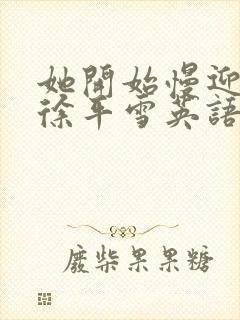 她開始慢迎
徐年雪英語
廢柴果果糖